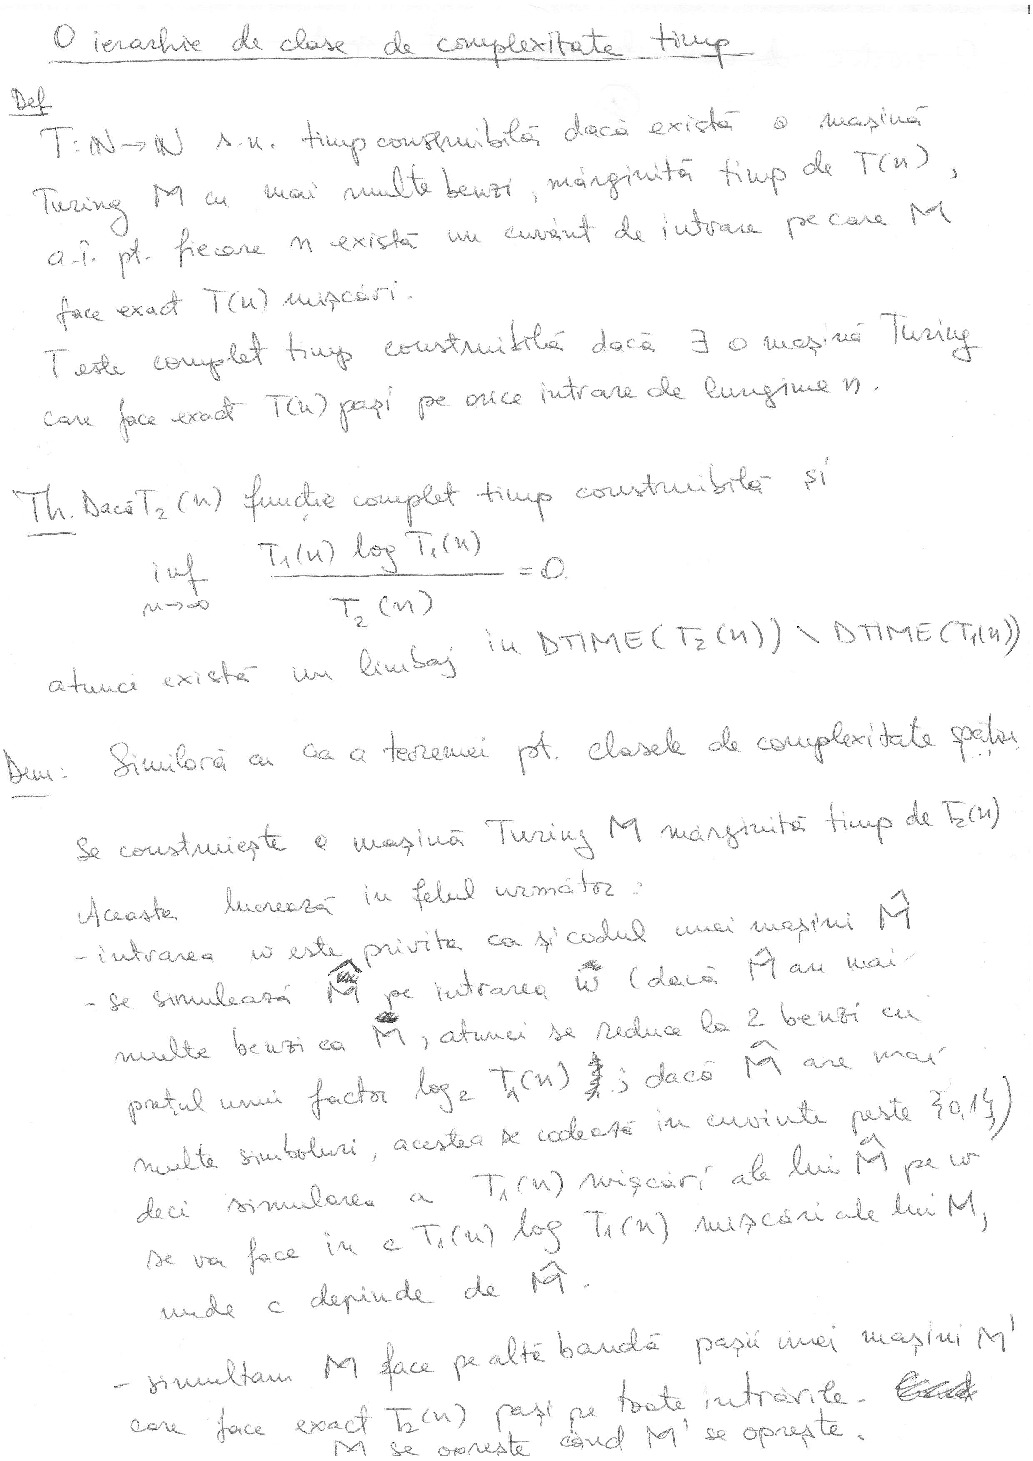 1
O ierarhie de clase de complexitate timp
Def
T: ℕ → ℕ s.n. timp construibilă dacă există o mașină
Turing M cu mai multe benzi, mărginită timp de T(n),
a.î. pt. fiecare n există un cuvânt de intrare pe care M
face exact T(n) mișcări.
T este complet timp construibilă dacă ∃ o mașină Turing
care face exact T(n) pași pe orice intrare de lungime n.
Th. Dacă T₂(n) funcție complet timp construibilă și
inf T₁(n) log T₁(n)
n→∞ T₂(n) = 0
atunci există un limbaj in DTIME(T₂(n)) \ DTIME(T₁(n))
Dem: Similară cu cea a teoremei pt. clasele de complexitate spațiu
Se construiește o mașină Turing M mărginită timp de T₂(n)
Aceasta lucrează in felul următor:
- intrarea w este privita ca și codul unei mașini M̂
- se simulează M̂ pe intrarea w (dacă M̂ are mai
multe benzi ca M, atunci se reduce la 2 benzi cu
prețul unui factor log₂ T₁(n); dacă M̂ are mai
multe simboluri, acestea se codează in cuvinte peste {0,1})
deci simularea a T₁(n) mișcări ale lui M̂ pe w
se va face in c T₁(n) log T₁(n) mișcări ale lui M,
unde c depinde de M̂.
- simultan M face pe altă bandă pașii unei mașini M'
care face exact T₂(n) pași pe toate intrările.
M se oprește când M' se oprește.